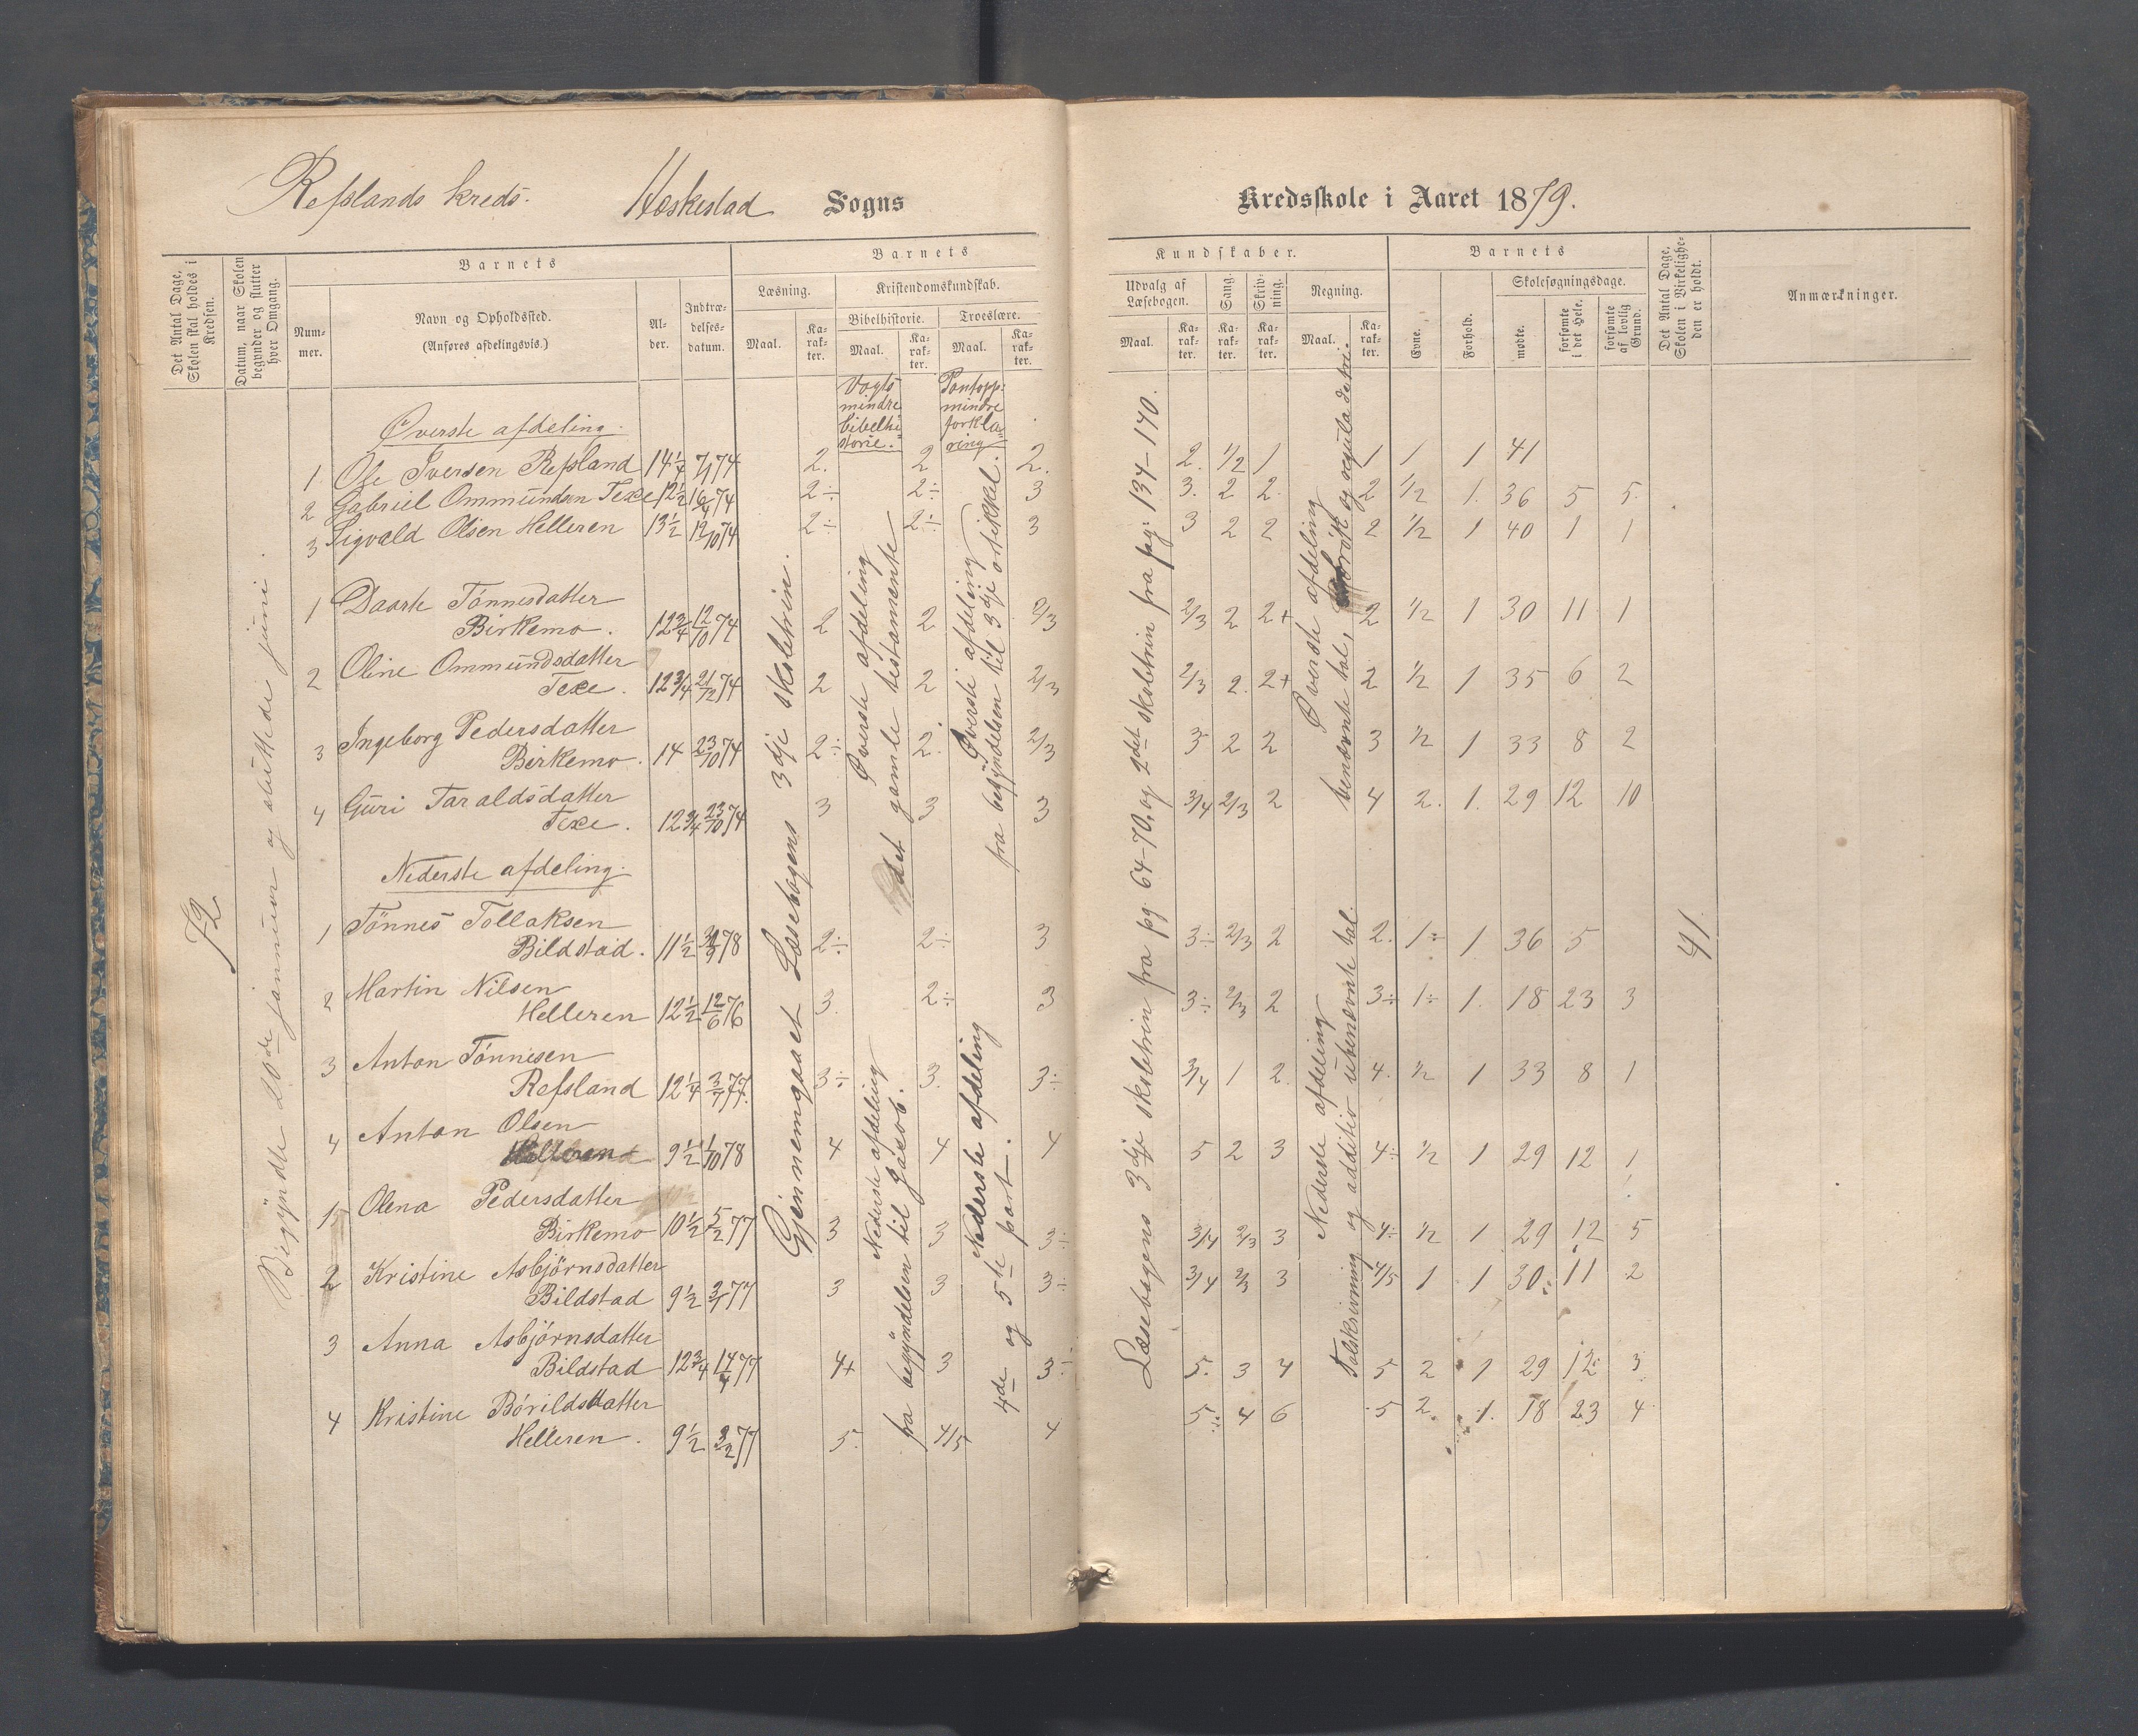 Refslands kreds. Heskestad Sogns
Kredsskole i Aaret 1879.
Det Antal Dage, Skolen skal holdes i Kredsen.
Datum, naar Skolen begynder og slutter hver Omgang.
Barnets
Nummer.
Navn og Opholdssted.
(Anføres afdelingsvis.)
Alder.
Indtrædelsesdatum.
Barnets
Læsning.
Kristendomskundskab.
Bibelhistorie. Troeslære.
Maal. Karakter. Maal. Karakter. Maal. Karakter.
Kundskaber.
Udvalg af Læsebogen.
Sang.
Skrivning.
Regning.
Maal. Karakter. Karakter. Karakter. Maal. Karakter.
Barnets
Evne.
Forhold.
Skolesøgningsdage.
mødte.
forsømte i det Hele.
forsømte af lovlig Grund.
Det Antal Dage, Skolen i Virkeligheden er holdt.
Anmærkninger.
72
Begyndte 20de januuar og sluttede juni.
Gjennemgaaet Læsebogens 3dje skoletrin.
Vogts mindre bibelhistorie.
Øverste afdeling det gamle testamente
Nederste afdeling fra begyndelsen til Jakob.
Pontopp: mindre forklaring
Øverste afdeling fra begyndelsen til 3dje artikkel.
Nederste afdeling 4de og 5te part.
Læsebogens 3dje skoletrin fra pg. 64-70, og 2det skoletrin fra pag: 134-140.
Øverste afdeling benævnte tal, brøk og regula detri.
Nederste afdeling Talskrivning og additio ubenævnte tal.
41.
Øverste afdeling.
1 Ole Iversen Refsland 14 1/4 7/1 74 2. 2 2. 2. 1/2 1 1 1 1 41
2 Gabriel Ommundsen Texe 12 1/2 16/4 74 2÷ 2÷ 3 3. 2 2. 2 1/2 1. 36 5 5.
3 Sigvald Olsen Helleren 13 1/2 12/10 74 2÷ 2÷ 3 3 2 2 2 1/2 1 40 1 1
1 Daarte Tönnesdatter
Birkemo. 12 3/4 12/10 74 2 2 2/3 2/3 2 2+ 2 1/2 1 30 11 1
2 Oline Ommundsdatter
Texe. 12 3/4 21/12 74 2 2 2/3 2/3 2. 2+ 2 1/2 1 35 6 2
3 Ingeborg Pedersdatter
Birkemo. 14 23/10 74 2÷ 2. 2/3 3 2 2 3 1/2 1 33 8 2
4 Guri Taraldsdatter
Texe. 12 3/4 23/10 74 3 3 3 3/4 2/3 2 4 2. 1. 29 12 10
Nederste afdeling.
1 Tönnes Tollaksen
Bildstad. 11 1/2 78 2÷ 2÷ 3 3÷ 2/3 2 2. 1÷ 1 36 5
2 Martin Nilsen
Helleren 12 1/2 12/6 76 3. 2÷ 3 3÷ 2/3 2 3÷ 1÷ 1. 18 23 3
3 Anton Tönnesen
Refsland 12 1/4 3/7 77. 3÷ 3. 3÷ 3/4 1 2. 4. 1/2 1 33 8 1
4 Anton Olsen
Helleren 9 1/2 1/10 78 4 4 4 5 2 3 4÷ 1/2 1 29 12 1
1 Olena Pedersdatter
Birkemo 10 1/2 5/2 77 3 3 3÷ 3/4 2/3 3 4÷ 1/2 1 29 12 5
2 Kristine Asbjørnsdatter
Bildstad 9 1/2 77 3 3 3÷ 3/4 2/3 3 4/5 1 1 30 11 2
3 Anna Asbjörnsdatter
Bildstad 12 3/4 14/4 77 4+ 3 3÷ 5. 3 4 5 2 1 29 12 3
4 Kristine Börildsdatter
Helleren. 9 1/2 77 5. 4/5 4 5. 4 6 5 2. 1. 18 23 4